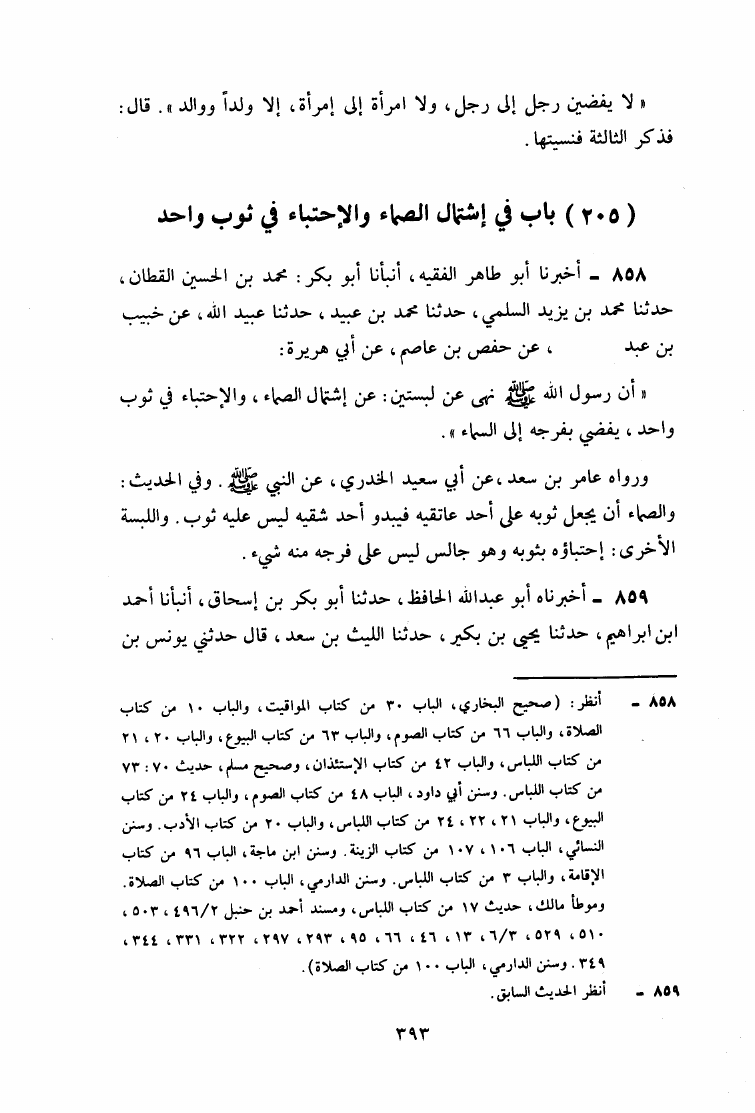 « لا يفضين رجل إلى رجل، ولا امرأة إلى إمرأة، إلا ولداً ووالد ». قال:
فذكر الثالثة فنسيتها.
( ٢٠٥ ) باب في إشتمال الصماء والإحتباء في ثوب واحد
٨٥٨ ـ أخبرنا أبو طاهر الفقيه، أنبأنا أبو بكر: محمد بن الحسين القطان،
حدثنا محمد بن يزيد السلمي، حدثنا محمد بن عبيد، حدثنا عبيد الله، عن خبيب
بن عبد ، عن حفص بن عاصم، عن أبي هريرة:
« أن رسول الله ﷺ نهى عن لبستين: عن إشتمال الصماء، والإحتباء في ثوب
واحد، يفضي بفرجه إلى السماء ».
ورواه عامر بن سعد، عن أبي سعيد الخدري، عن النبي ﷺ. وفي الحديث:
والصماء أن يجعل ثوبه على أحد عاتقيه فيبدو أحد شقيه ليس عليه ثوب. واللبسة
الأخرى: إحتباؤه بثوبه وهو جالس ليس على فرجه منه شيء.
٨٥٩ ـ أخبرناه أبو عبدالله الحافظ، حدثنا أبو بكر بن إسحاق، أنبأنا أحمد
ابن ابراهيم، حدثنا يحيى بن بكير، حدثنا الليث بن سعد، قال حدثني يونس بن
٨٥٨ ـ أنظر: (صحيح البخاري، الباب ٣٠ من كتاب المواقيت، والباب ١٠ من كتاب
الصلاة، والباب ٦٦ من كتاب الصوم، والباب ٦٣ من كتاب البيوع، والباب ٢٠، ٢١
من كتاب اللباس، والباب ٤٢ من كتاب الإستئذان، وصحيح مسلم، حديث ٧٠: ٧٣
من كتاب اللباس. وسنن أبي داود، الباب ٤٨ من كتاب الصوم، والباب ٢٤ من كتاب
البيوع، والباب ٢١، ٢٢، ٢٤ من كتاب اللباس، والباب ٢٠ من كتاب الأدب. وسنن
النسائي، الباب ١٠٦، ١٠٧ من كتاب الزينة. وسنن ابن ماجة، الباب ٩٦ من كتاب
الإقامة، والباب ٣ من كتاب اللباس. وسنن الدارمي، الباب ١٠٠ من كتاب الصلاة.
وموطأ مالك، حديث ١٧ من كتاب اللباس، ومسند أحمد بن حنبل ٤٩٦/٢، ٥٠٣،
٥١٠، ٥٢٩، ٦/٣، ١٣، ٤٦، ٦٦، ٩٥، ٢٩٣، ٢٩٧، ٣٢٢، ٣٣١، ٣٤٤،
٣٤٩. وسنن الدارمي، الباب ١٠٠ من كتاب الصلاة).
٨٥٩ ـ أنظر الحديث السابق.
٣٩٣